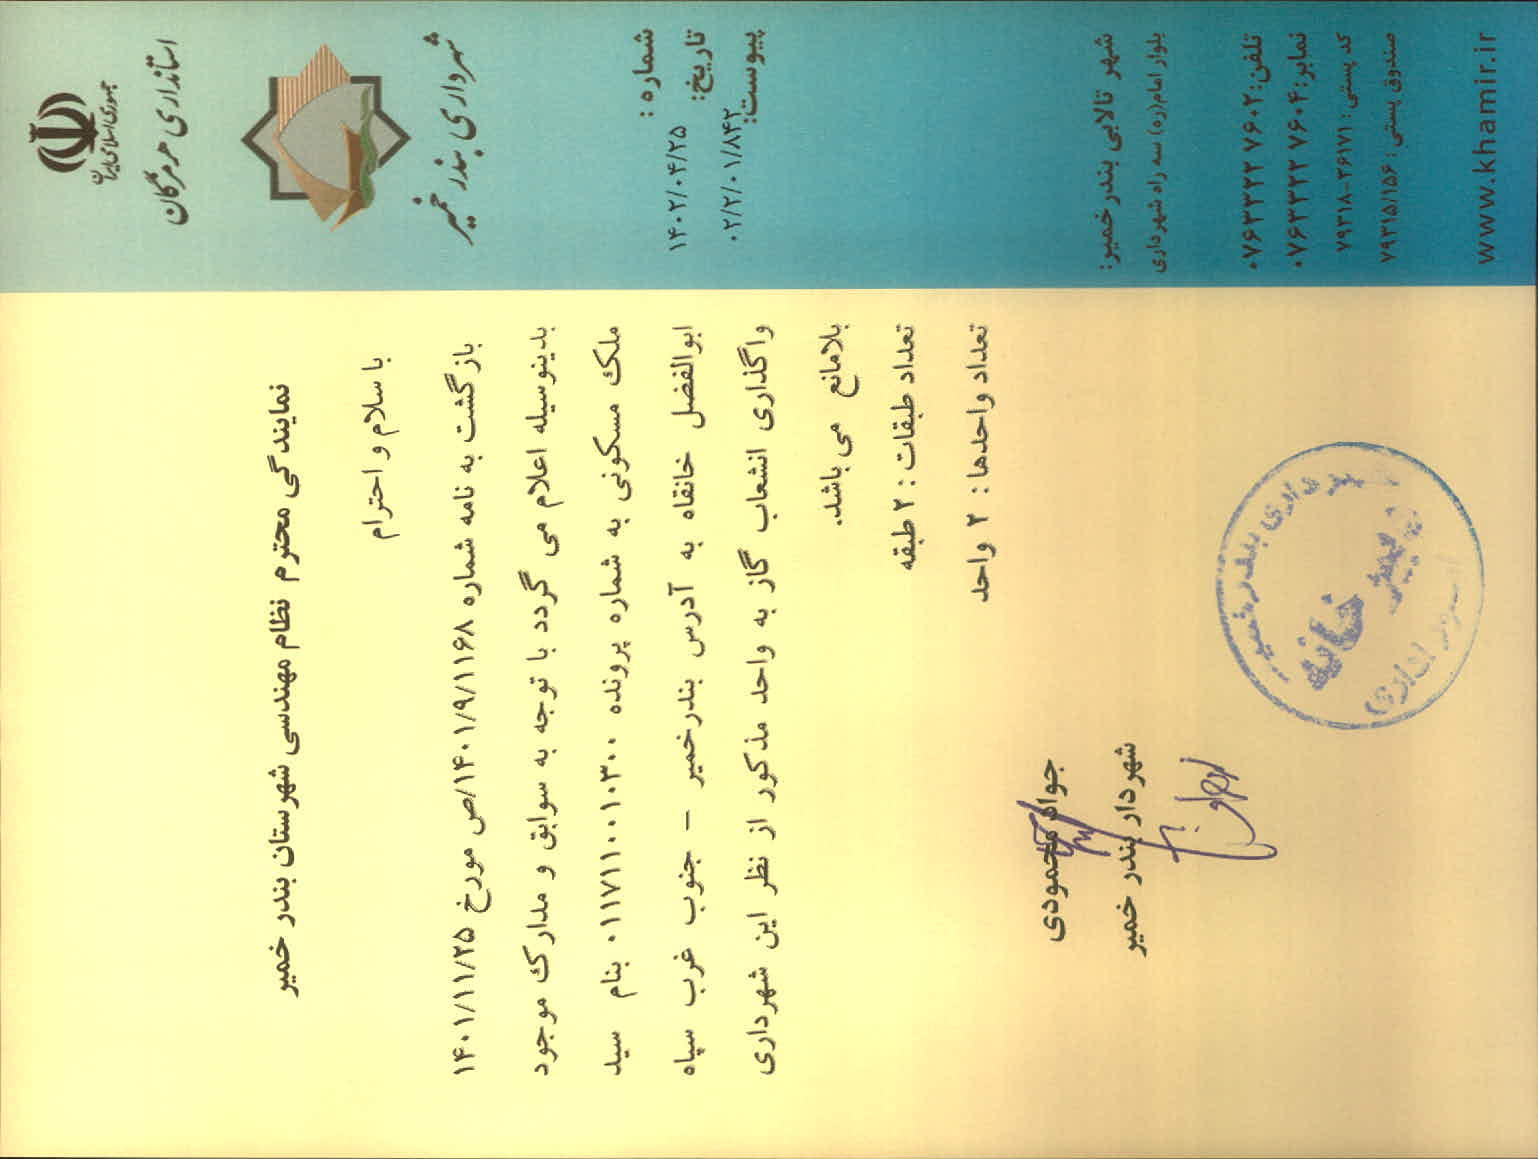 جمهوری اسلامی ایران
استانداری هرمزگان
شهرداری بندر خمیر
شماره :
تاریخ:
۱۴۰۲/۰۴/۲۵
پیوست:
۰۲/۲/۰۱/۸۴۲
شهر تالابی بندر خمیر:
بلوار امام(ره) سه راه شهرداری
تلفن: ۰۷۶۳۳۲۲ ۷۶۰۲
نمابر: ۰۷۶۳۳۲۲ ۷۶۰۴
کد پستی : ۷۹۳۱۸-۳۶۱۷۱
صندوق پستی : ۷۹۳۱۵/۱۵۶
www.khamir.ir
نمایندگی محترم نظام مهندسی شهرستان بندر خمیر
با سلام و احترام
بازگشت به نامه شماره ۱۴۰۱/۹/۱۱۶۸/ص مورخ ۱۴۰۱/۱۱/۲۵
بدینوسیله اعلام می گردد با توجه به سوابق و مدارک موجود
ملک مسکونی به شماره پرونده ۰۱۱۷۱۱۰۰۱۰۳۰۰ بنام سید
ابوالفضل خانقاه به آدرس بندرخمیر – جنوب غرب سپاه
واگذاری انشعاب گاز به واحد مذکور از نظر این شهرداری
بلامانع می باشد.
تعداد طبقات : ۲ طبقه
تعداد واحدها : ۲ واحد
جواد محمودی
شهردار بندر خمیر
شهرداری بندر خمیر
دبیر خانه
امور اداری